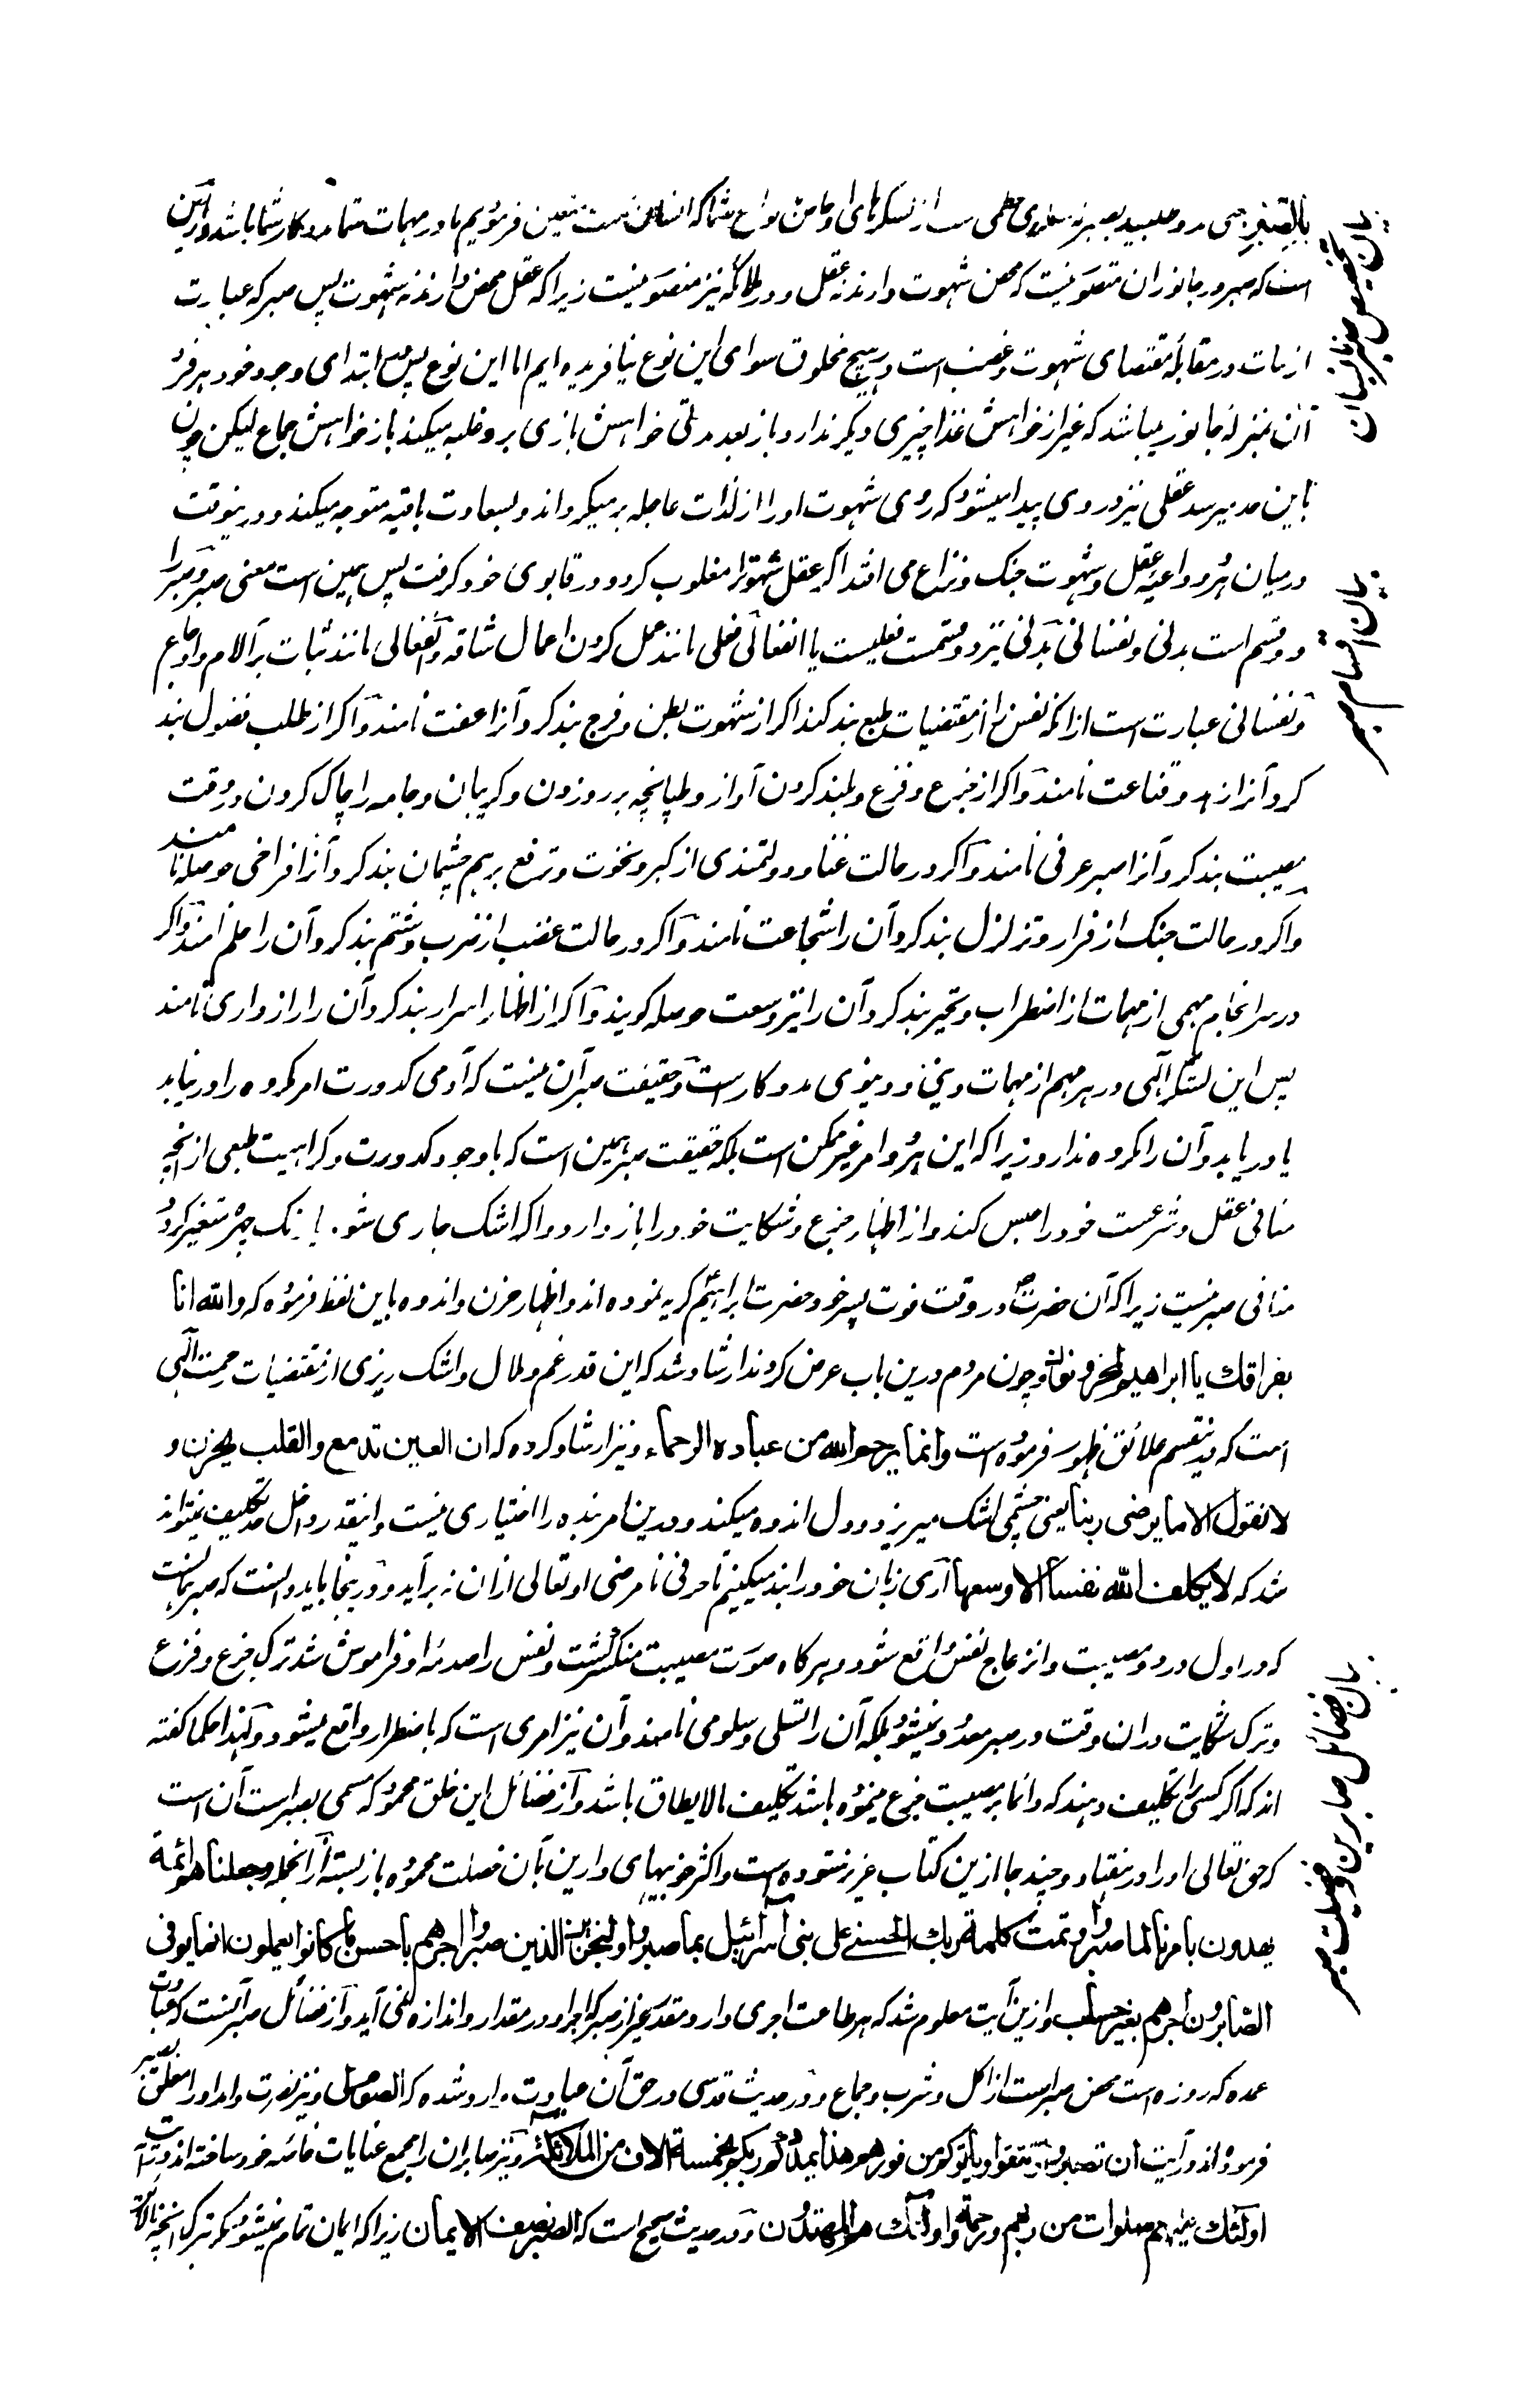 بالصبر یعنی مدد طلبید بصبر که لشکری عظیم است از لشکرهای ما و ما من نوع شما که انسان است متعین فرمودیم تا در مهمات شما مددکار شما باشد و ازین
است که صبر در جانوران متصور نیست که محض شهوت دارند نه عقل و در ملائکه نیز متصور نیست زیرا که عقل محض دارند نه شهوت پس صبر که عبارت
از ثبات در مقابله مقتضای شهوت و غضب است در هیچ مخلوق سوای این نوع نیافریده ایم اما این نوع پس در ابتدای وجود خود هر فرد
آن بمنزله جانور میباشد که غیر از خواهش غذا چیزی دیگر ندارد و باز بعد مدتی خواهش بازی برو غلبه میکند باز خواهش جماع لیکن چون
باین حد میرسد عقلی نیز در وی پیدا میشود که روی شهوت او را از لذات عاجله بر میگرداند و بسعادت باقیه متوجه میکند و درینوقت
در میان هر دو داعیه عقل و شهوت جنگ و نزاع می افتد اگر عقل شهوترا مغلوب کرد و در قابوی خود گرفت پس همین است معنی صبر و صبر را
دو قسم است بدنی و نفسانی بدنی نیز دو قسمت فعلیست یا انفعالی فعلی مانند عمل کردن اعمال شاقه و انفعالی مانند ثبات بر آلام و اوجاع
و نفسانی عبارت است از آنکه نفس را از مقتضیات طبع بند کند اگر از شهوت بطن و فرج بند کرد آنرا عفت نامند و اگر از طلب فضول بند
کرد آنرا زهد و قناعت نامند و اگر از جزع و فزع و بلند کردن آواز و طپانچه بر رو زدن و گریبان و جامه را چاک کردن در وقت
مصیبت بند کرد آنرا صبر عرفی نامند و اگر در حالت غنا و دولتمندی از کبر و نخوت و ترفع بر هم چشمان بند کرد آنرا فراخی حوصله نامند
و اگر در حالت جنگ از فرار و تزلزل بند کرد آن را شجاعت نامند و اگر در حالت غضب از ضرب و شتم بند کرد آن را حلم نامند و اگر
در سرانجام مهمی از مهمات از اضطراب و تحیر بند کرد آن را نیز وسعت حوصله گویند و اگر از اظهار اسرار بند کرد آن را رازداری نامند
پس این لشکر الهی در هر مهم از مهمات دینی و دنیوی مددکار است و حقیقت صبر آن نیست که آدمی کدورت امر مکروه را در نیابد
یا دریابد و آن را مکروه ندارد زیرا که این هر دو امر غیر ممکن است بلکه حقیقت صبر همین است که با وجود کدورت و کراهیت طبعی از آنچه
منافی عقل و شرعست خود را حبس کند و از اظهار جزع و شکایت خود را باز دارد و اگر اشک جاری شود یا رنگ چهره متغیر گردد
منافی صبر نیست زیرا که آن حضرت در وقت فوت پسر خود حضرت ابراهیم گریه نموده اند و اظهار حزن و اندوه باین لفظ فرموده که والله انا
بفراقك یا ابراهیم لمحزونون و چون مردم درین باب عرض کردند ارشاد شد که این قدر غم و ملال و اشک ریزی از مقتضیات رحمت الهی
است که در تقسم خلائق ظهور فرموده است وانما یرحم الله من عباده الرحماء و نیز ارشاد کرده که ان العین تدمع والقلب یحزن و
لا نقول الا ما یرضی ربنا یعنی چشمی اشک میریزد و دل اندوه میکند و درین امر بنده را اختیاری نیست و اینقدر داخل حد تکلیف نمیتواند
شد که لا یکلف الله نفسا الا وسعها آری زبان خود را بند میکنیم تا حرفی نامرضی او تعالی از آن نه برآید و درینجا باید دانست که صبر همانست
که در اول درد و مصیبت و انزعاج نفس واقع شود و هر گاه صورت مصیبت منکسر گشت و نفس را صدمه او فراموش شد ترک جزع و فزع
و ترک شکایت در آن وقت در صبر معدود نمیشود بلکه آن را تسلی و سلو می نامند و آن نیز امری است که باضطرار واقع میشود و لهذا حکما گفته
اند که اگر کسی را تکلیف دهند که دائما بر مصیبت جزع مینموده باشد تکلیف ما لا یطاق باشد و از فضائل این خلق محمود که مسمی بصبر است آن است
که حق تعالی او را در هفتاد و چند جا ازین کتاب عزیز ستوده است و اکثر خوبیهای دارین بآن خصلت محموده باز بسته از آنجمله وجعلناهم ائمة
یهدون بامرنا لما صبروا وتمت کلمة ربك الحسنی علی بنی اسرائیل بما صبروا ولنجزین الذین صبروا اجرهم باحسن ما کانوا یعملون انما یوفی
الصابرون اجرهم بغیر حساب و ازین آیت معلوم شد که هر طاعت اجری دارد مقدر غیر از صبر که اجر او در مقدار و اندازه نمی آید و از فضائل صبر آنست که عبادت
عمده که روزه است محض صبر است از اکل و شرب و جماع و در حدیث قدسی در حق آن عبادت وارد شده که الصوم لی و نیز نصرت و امداد را معلق بصبر
فرموده اند در آیت ان تصبروا وتتقوا ویاتوکم من فورهم هذا یمددکم ربکم بخمسة الاف من الملائکة و نیز صابران را مجمع عنایات خاصه خود ساخته اند در آیت
اولئك علیهم صلوات من ربهم ورحمة واولئك هم المهتدون و در حدیث صحیح است که الصبر نصف الایمان زیرا که ایمان تمام نمیشود مگر بترک آنچه نالائق
بیان تخصیص صبر بانسان
بیان اقسام صبر
بیان فضائل صابرین و فضیلت صبر